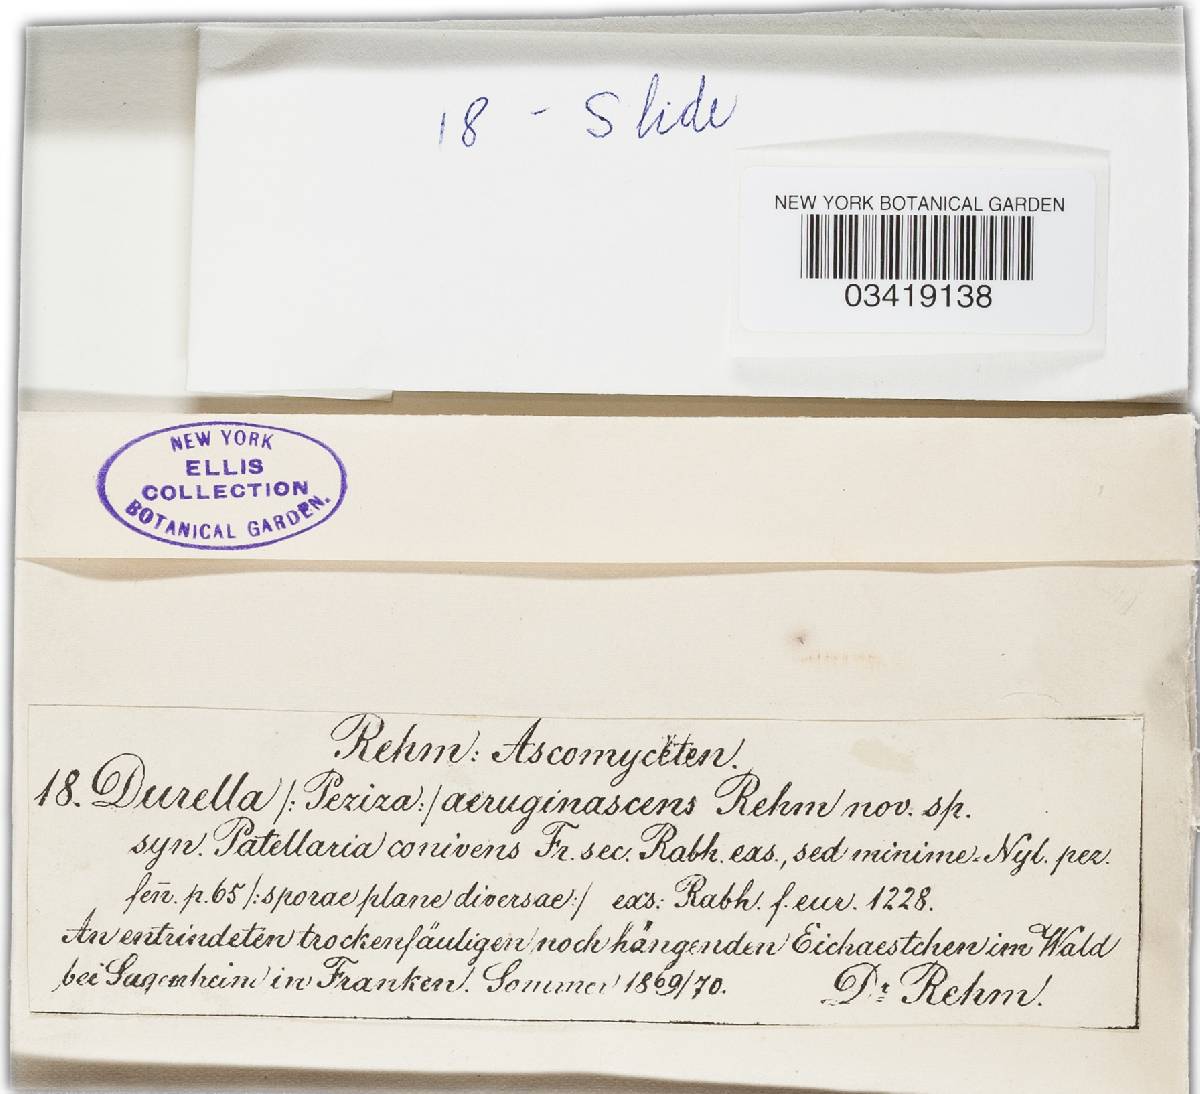 18 - Slide
NEW YORK BOTANICAL GARDEN
03419138
NEW YORK
ELLIS
COLLECTION
BOTANICAL GARDEN.
Rehm: Ascomyceten.
18. Durella /: Peziza :/ aeruginascens Rehm nov. sp.
syn. Patellaria conivens Fr. sec. Rabh. exs., sed minime Nyl. pez.
fen̄. p. 65 /: sporae plane diversae :/ exs: Rabh. f. eur. 1228.
An entrindeten trockenfäuligen noch hängenden Eichaestchen im Wald
bei Sugenheim in Franken. Sommer 1869/70. Dr Rehm.